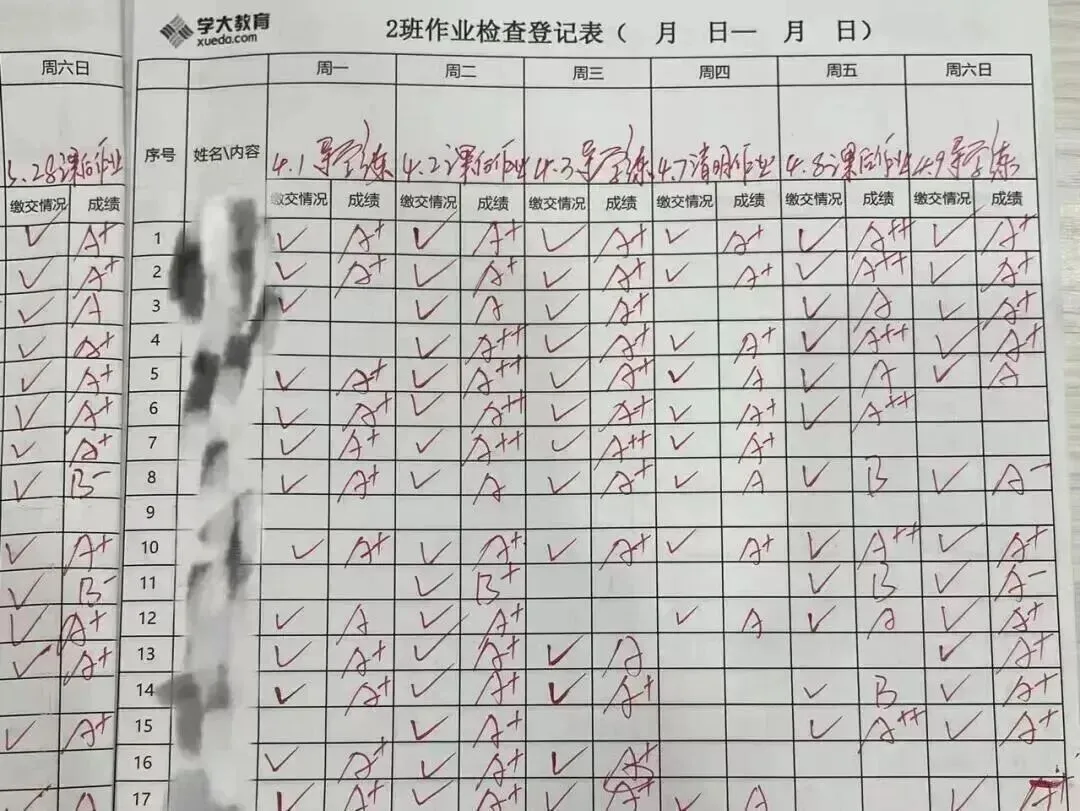 学大教育
xueda.com
2班作业检查登记表（ 月 日— 月 日）
周六日 周一 周二 周三 周四 周五 周六日
序号 姓名\内容
3.28课后作业 4.1导学练 4.2课后作业 4.3导学练 4.7清明作业 4.8课后作业 4.9导学练
缴交情况 成绩 缴交情况 成绩 缴交情况 成绩 缴交情况 成绩 缴交情况 成绩 缴交情况 成绩 缴交情况 成绩
✓ A+ 1 ✓ A+ ✓ A+ ✓ A+ ✓ A+ ✓ A++ ✓ A+
✓ A+ 2 ✓ A+ ✓ A+ ✓ A+ ✓ A+ ✓ A++ ✓ A+
✓ A 3 ✓ ✓ A ✓ A+ ✓ A ✓ A+
✓ A+ 4 ✓ A++ ✓ A+ ✓ A+ ✓ A++ ✓ A+
✓ A+ 5 ✓ A+ ✓ A++ ✓ A+ ✓ A ✓ A ✓ A
✓ A+ 6 ✓ A+ ✓ A++ ✓ A+ ✓ A+ ✓ A++
✓ A+ 7 ✓ A+ ✓ A++ ✓ A++ ✓ A+
✓ B- 8 ✓ A+ ✓ A ✓ A+ ✓ A ✓ B ✓ A-
9
✓ A+ 10 ✓ A+ ✓ A+ ✓ A+ ✓ A+ ✓ A++ ✓ A+
✓ B- 11 ✓ B+ ✓ B ✓ A-
✓ A+ 12 ✓ A ✓ A+ ✓ A ✓ A ✓ A+
✓ A+ 13 ✓ A+ ✓ A+ ✓ A ✓ A+
14 ✓ A+ ✓ A+ ✓ A+ ✓ B ✓ A+
✓ A+ 15 ✓ A+ ✓ A++ ✓ A+
16 ✓ A+ ✓ A+ ✓ A+
✓ A 17 ✓ A+ ✓ A+ ✓ A+ ✓ A ✓ A+